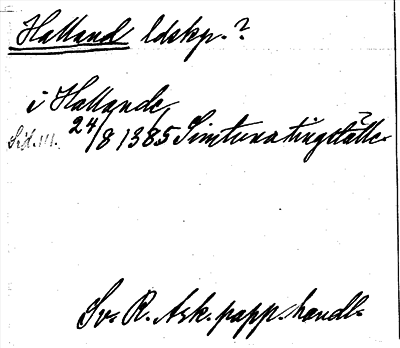 Halland ldskp.?
i Hallande
Sid. m. 24/8 1385 Simtuna tingställe
Sv. R. Ark. papp. handl.